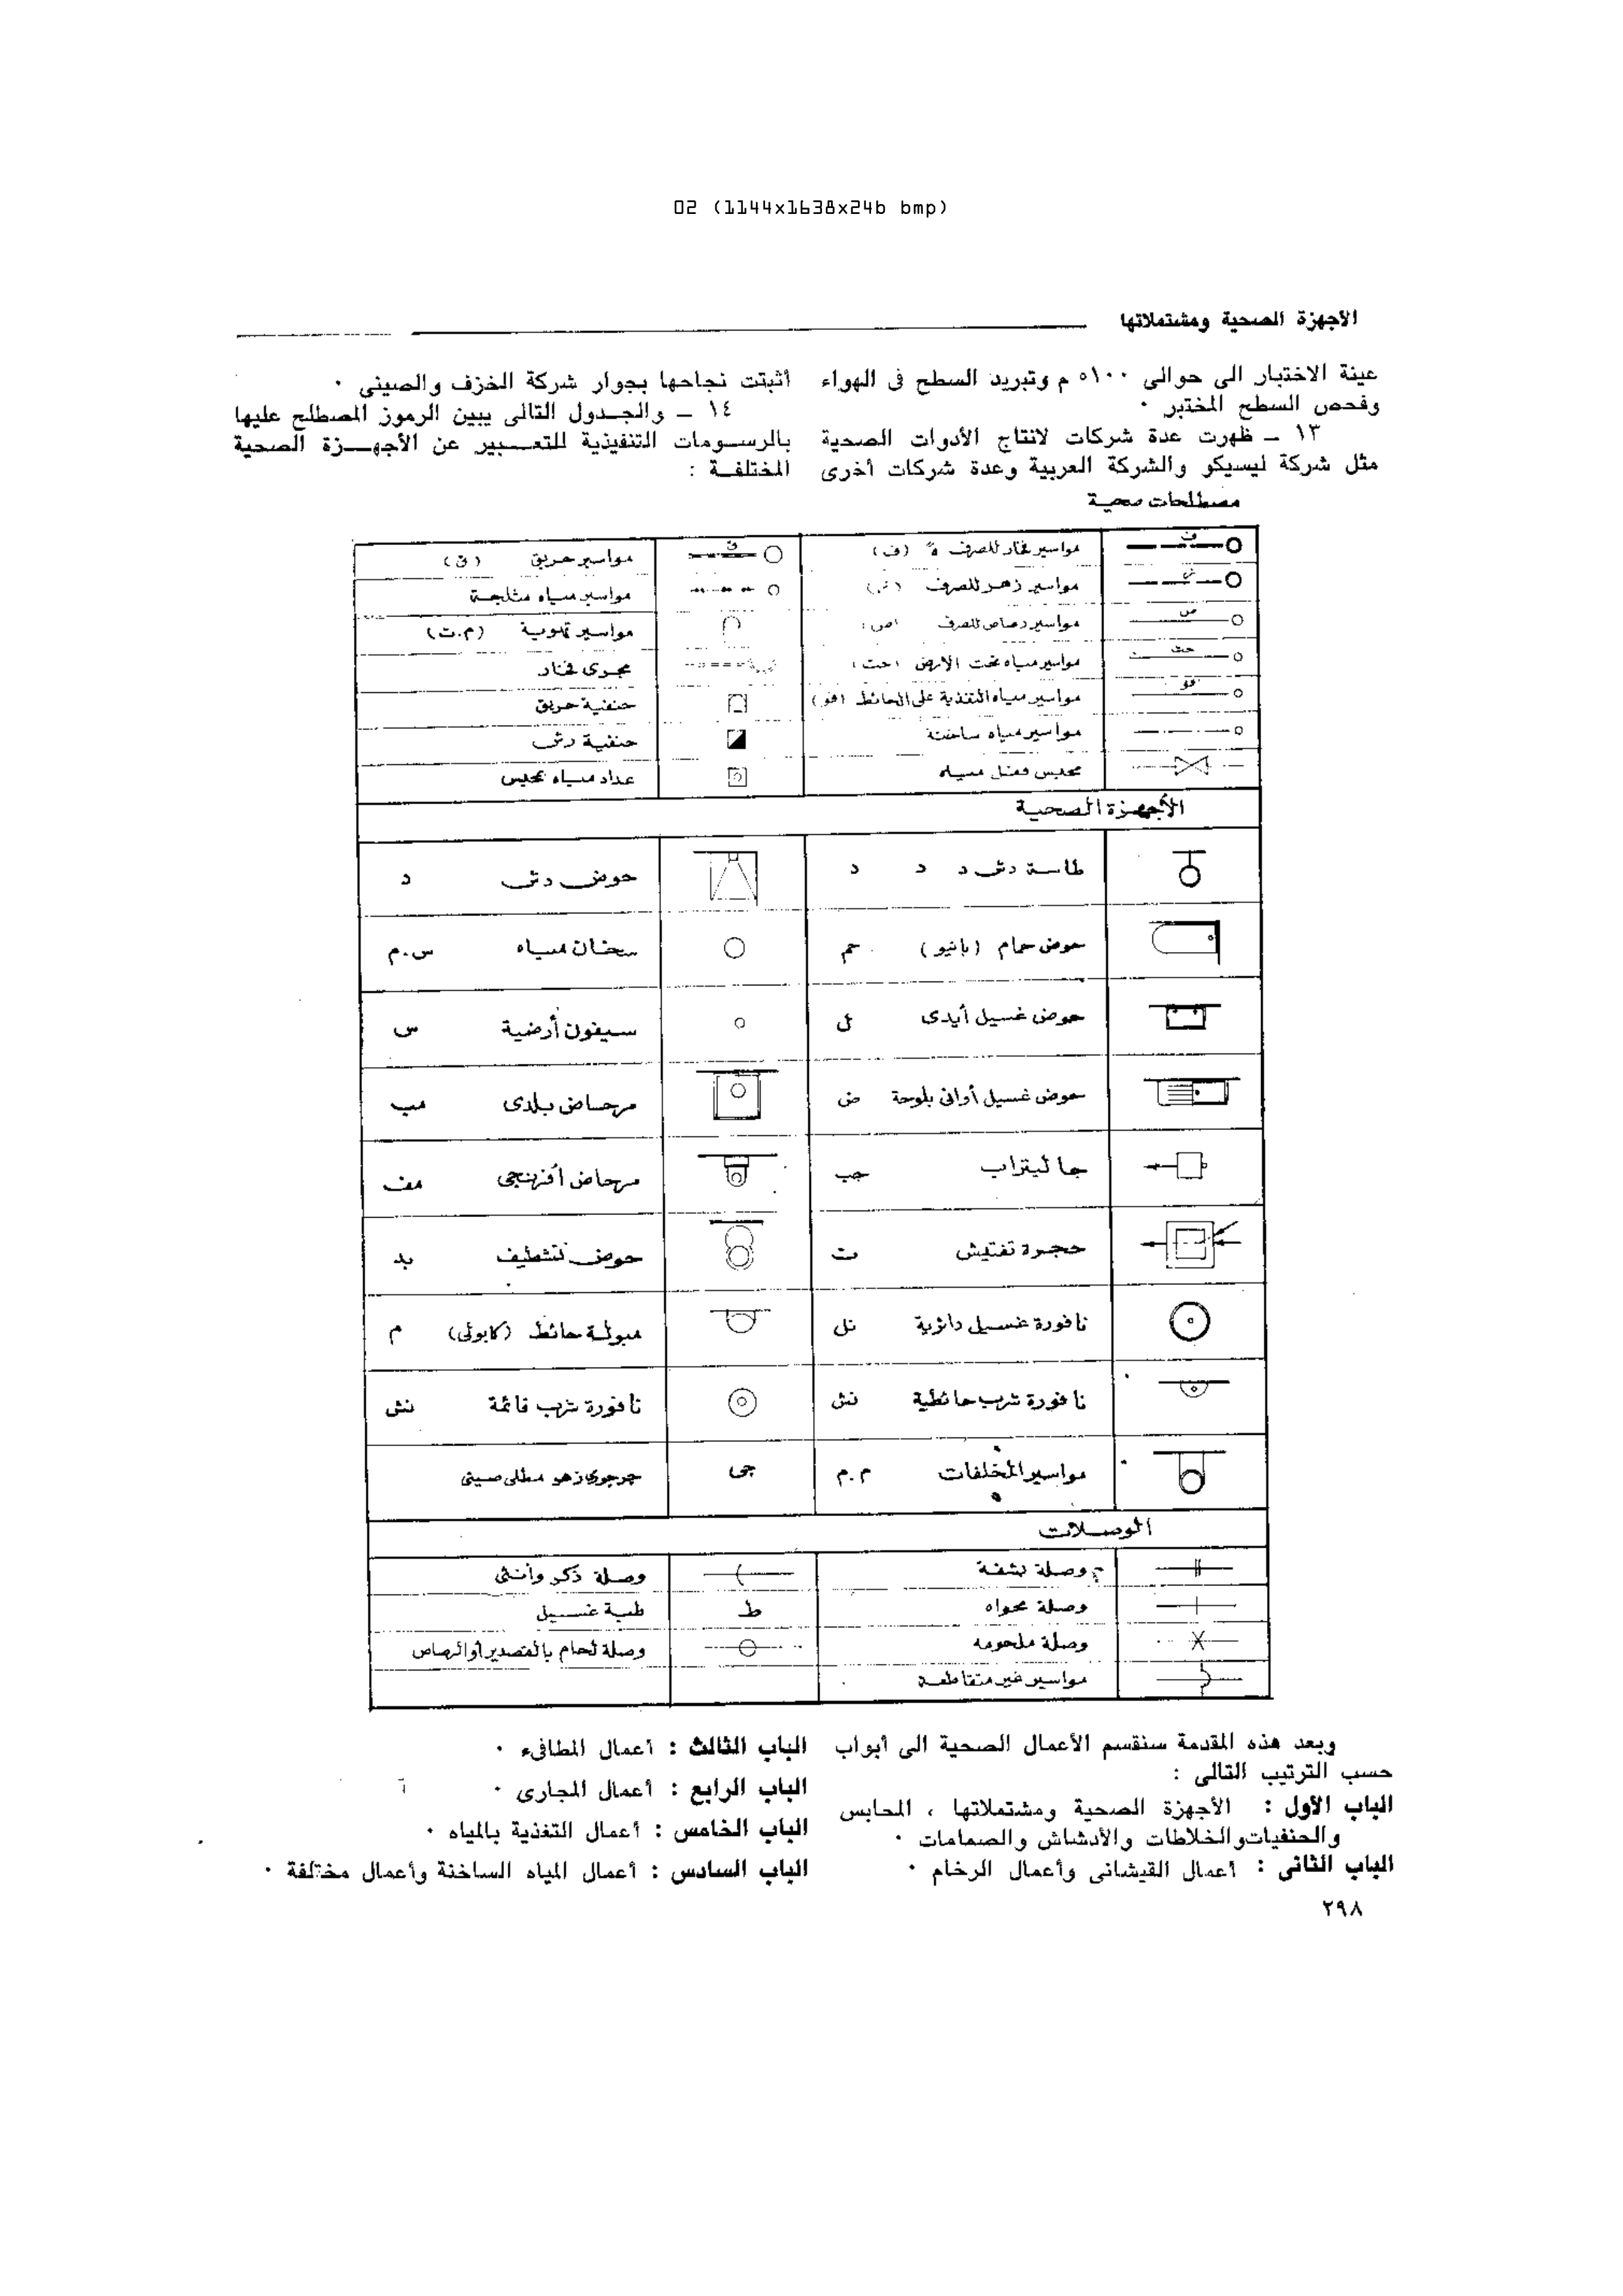 02 (1144x1638x24b bmp)
الأجهزة الصحية ومشتملاتها
عينة الاختبار الى حوالى ١٠٠°م وتبريد السطح فى الهواء
وفحص السطح المختبر .
١٣ ــ ظهرت عدة شركات لانتاج الأدوات الصحية
مثل شركة ليسيكو والشركة العربية وعدة شركات أخرى
أثبتت نجاحها بجوار شركة الخزف والصينى .
١٤ ــ والجدول التالى يبين الرموز المصطلح عليها
بالرسومات التنفيذية للتعبير عن الأجهزة الصحية
المختلفة :
مصطلحات صحية
مواسير فخار للصرف (ف)
مواسير حريق (ق)
مواسير زهر للصرف
مواسير مياه مثلجة
مواسير رصاص للصرف (ص)
مواسير قلووية (م.ت)
مواسير مياه تحت الارض (حت)
مجرى فخار
مواسير مياه التغذية على الحائط (فو)
حنفية حريق
مواسير مياه ساخنة
حنفية رش
محبس قفل مياه
عداد مياه بمحبس
الأجهزة الصحية
طاسة دش د د د
حوض دش د
حوض حمام (بانيو) حم
سخان مياه س.م
حوض غسيل أيدى ل
سيفون أرضية س
حوض غسيل أوانى بلوحة ض
مرحاض بلدى مب
جاليتراب جب
مرحاض أفرنجى مف
حجرة تفتيش ت
حوض تشطيف بد
نافورة غسيل دائرية نل
مبولة حائط (كابولى) م
نافورة شرب حائطية نش
نافورة شرب قائمة نش
مواسير المخلفات م.م
جى جرجورى زهر مطلى صينى
الوصلات
وصلة بشفة
وصلة ذكر وأنثى
وصلة محواه
ط طبة غسيل
وصلة ملحومه
وصلة لحام بالقصدير أو الرصاص
مواسير غير متقاطعة
وبعد هذه المقدمة سنقسم الأعمال الصحية الى أبواب
حسب الترتيب التالى :
الباب الأول : الأجهزة الصحية ومشتملاتها ، المحابس
والحنفيات والخلاطات والأدشاش والصمامات .
الباب الثانى : أعمال القيشانى وأعمال الرخام .
الباب الثالث : أعمال المطافىء .
الباب الرابع : أعمال المجارى .
الباب الخامس : أعمال التغذية بالمياه .
الباب السادس : أعمال المياه الساخنة وأعمال مختلفة .
٢٩٨